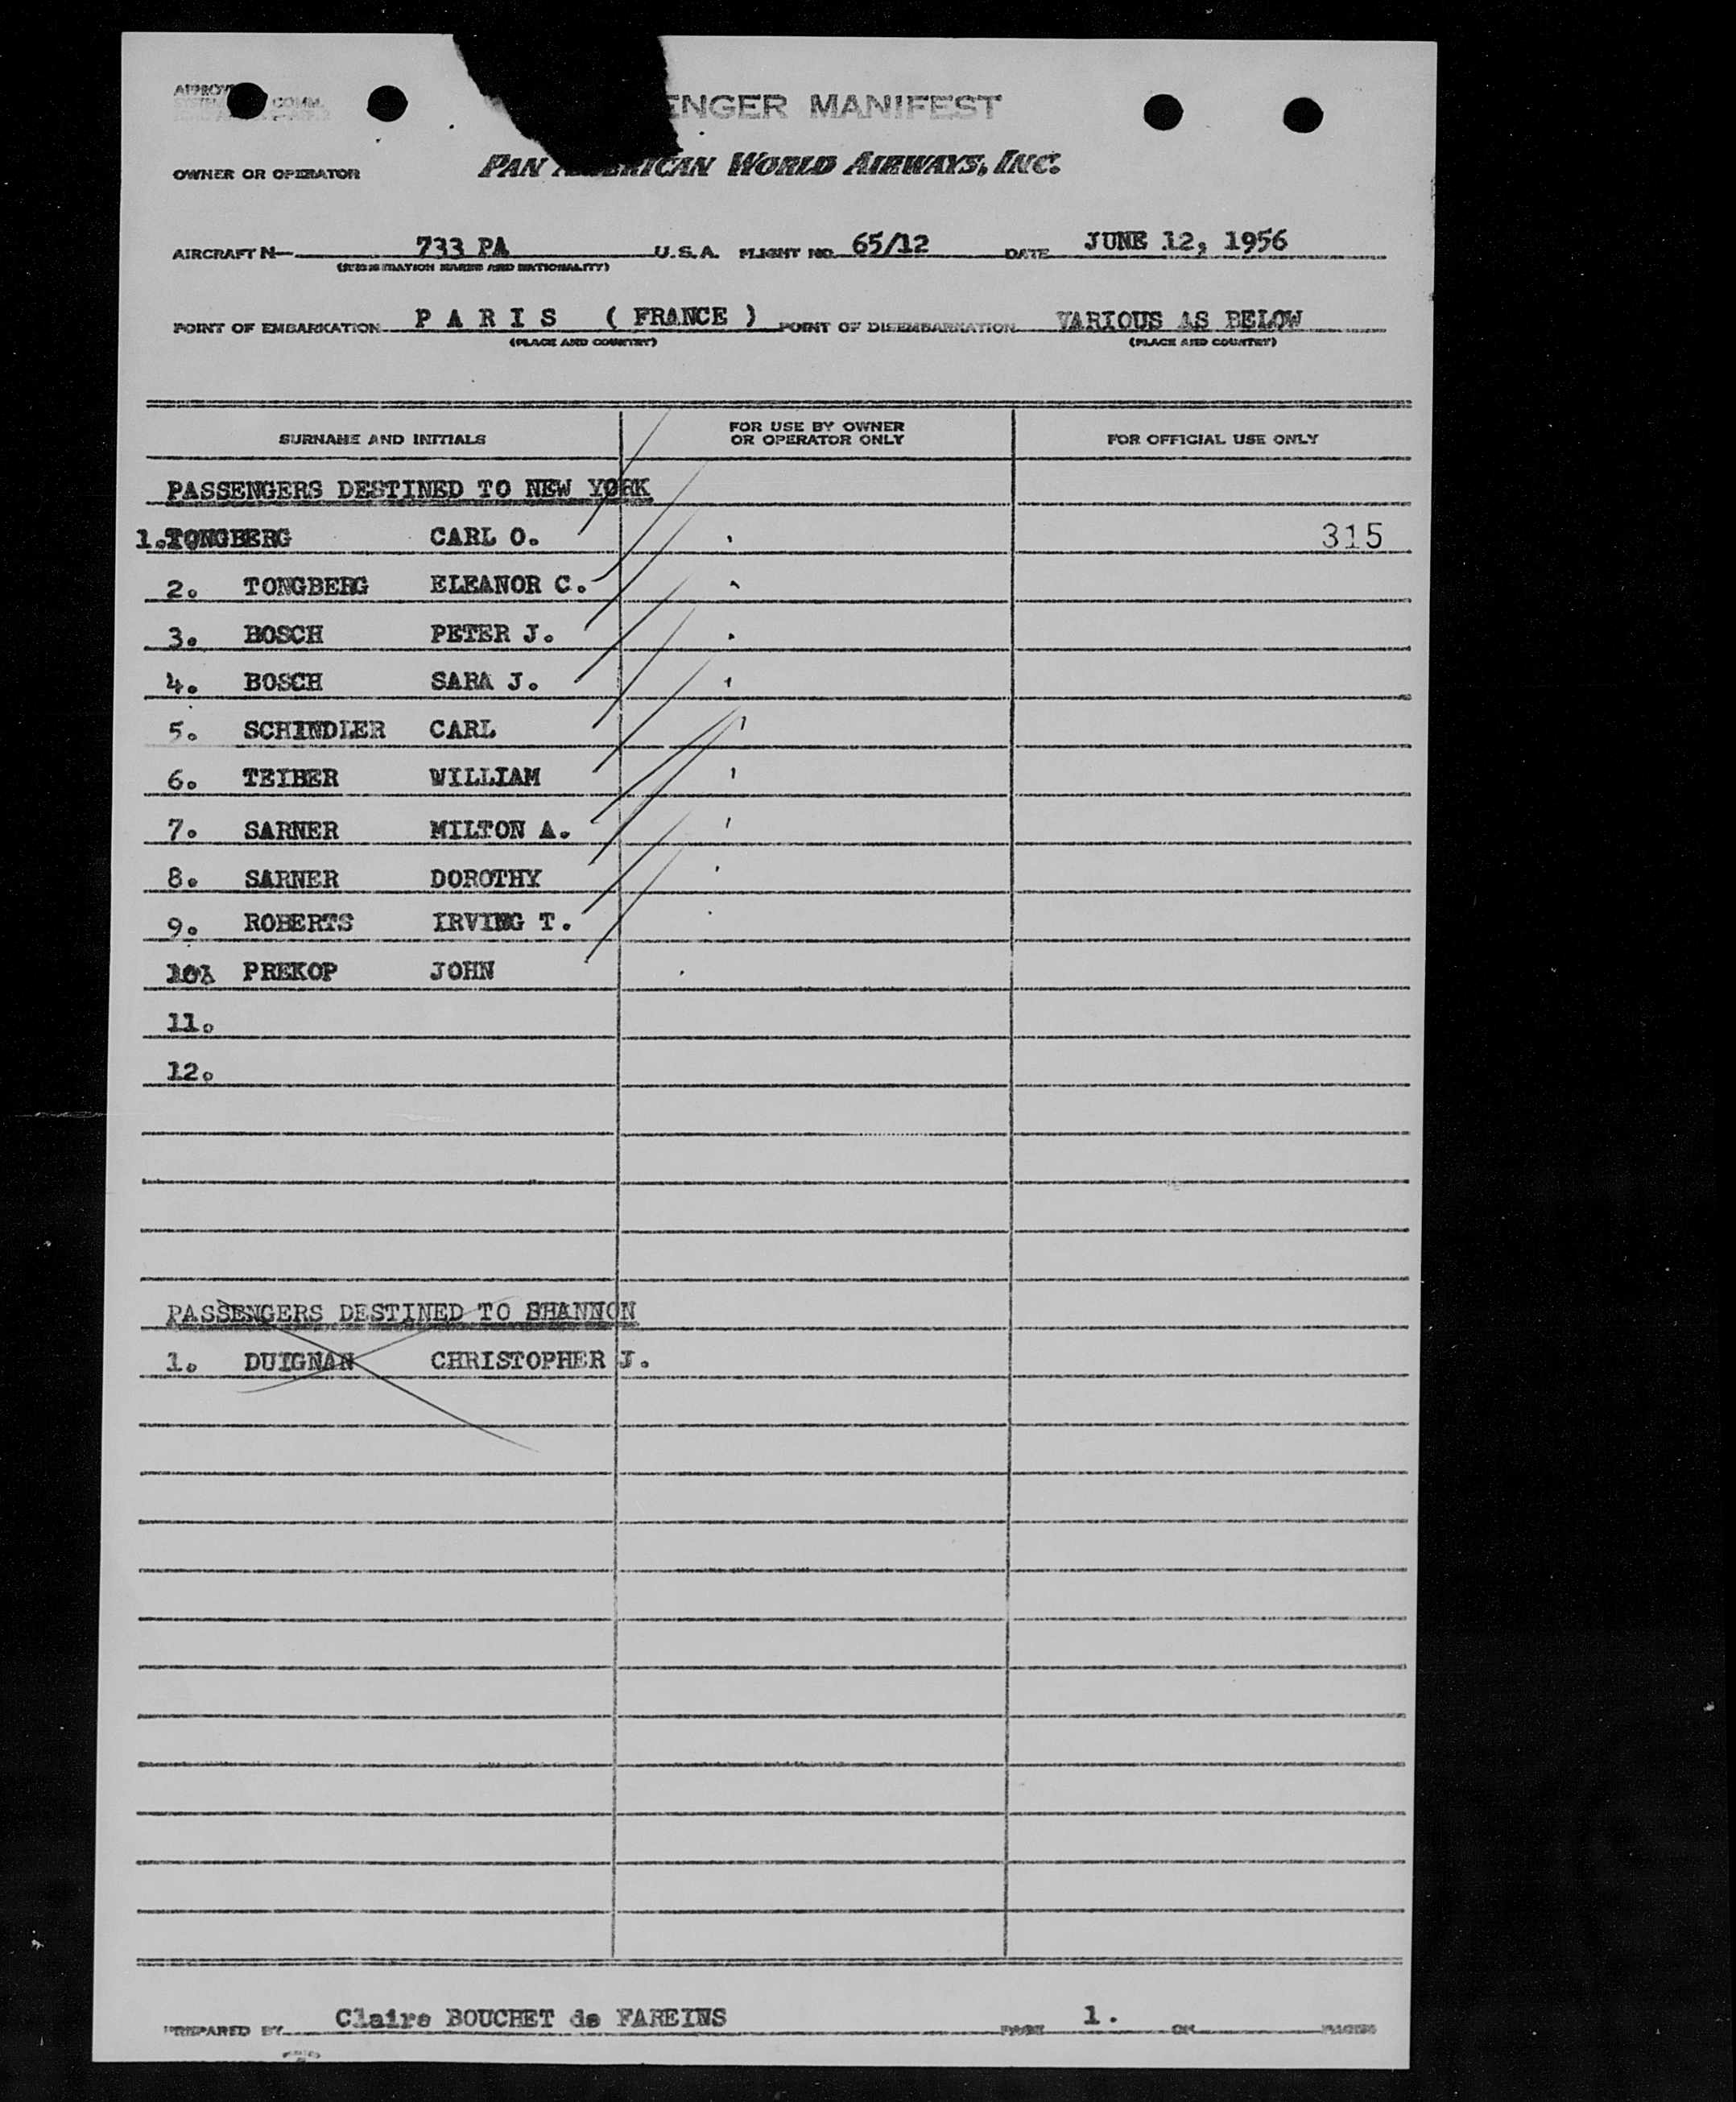 APPROV
COMM.
ENGER MANIFEST
OWNER OR OPERATOR PAN AMERICAN WORLD AIRWAYS, INC.
AIRCRAFT N— 733 PA U.S.A. FLIGHT NO. 65/12 DATE JUNE 12, 1956
(REGISTRATION MARKS AND NATIONALITY)
POINT OF EMBARKATION P A R I S ( FRANCE ) POINT OF DISEMBARKATION VARIOUS AS BELOW
(PLACE AND COUNTRY) (PLACE AND COUNTRY)
SURNAME AND INITIALS FOR USE BY OWNER OR OPERATOR ONLY FOR OFFICIAL USE ONLY
PASSENGERS DESTINED TO NEW YORK
1.TONGBERG CARL O. 315
2. TONGBERG ELEANOR C.
3. BOSCH PETER J.
4. BOSCH SARA J.
5. SCHINDLER CARL
6. TEIBER WILLIAM
7. SARNER MILTON A.
8. SARNER DOROTHY
9. ROBERTS IRVING T.
10. PREKOP JOHN
11.
12.
PASSENGERS DESTINED TO SHANNON
1. DUIGNAN CHRISTOPHER J.
PREPARED BY Claire BOUCHET de FAREINS PAGE 1. OF PAGES